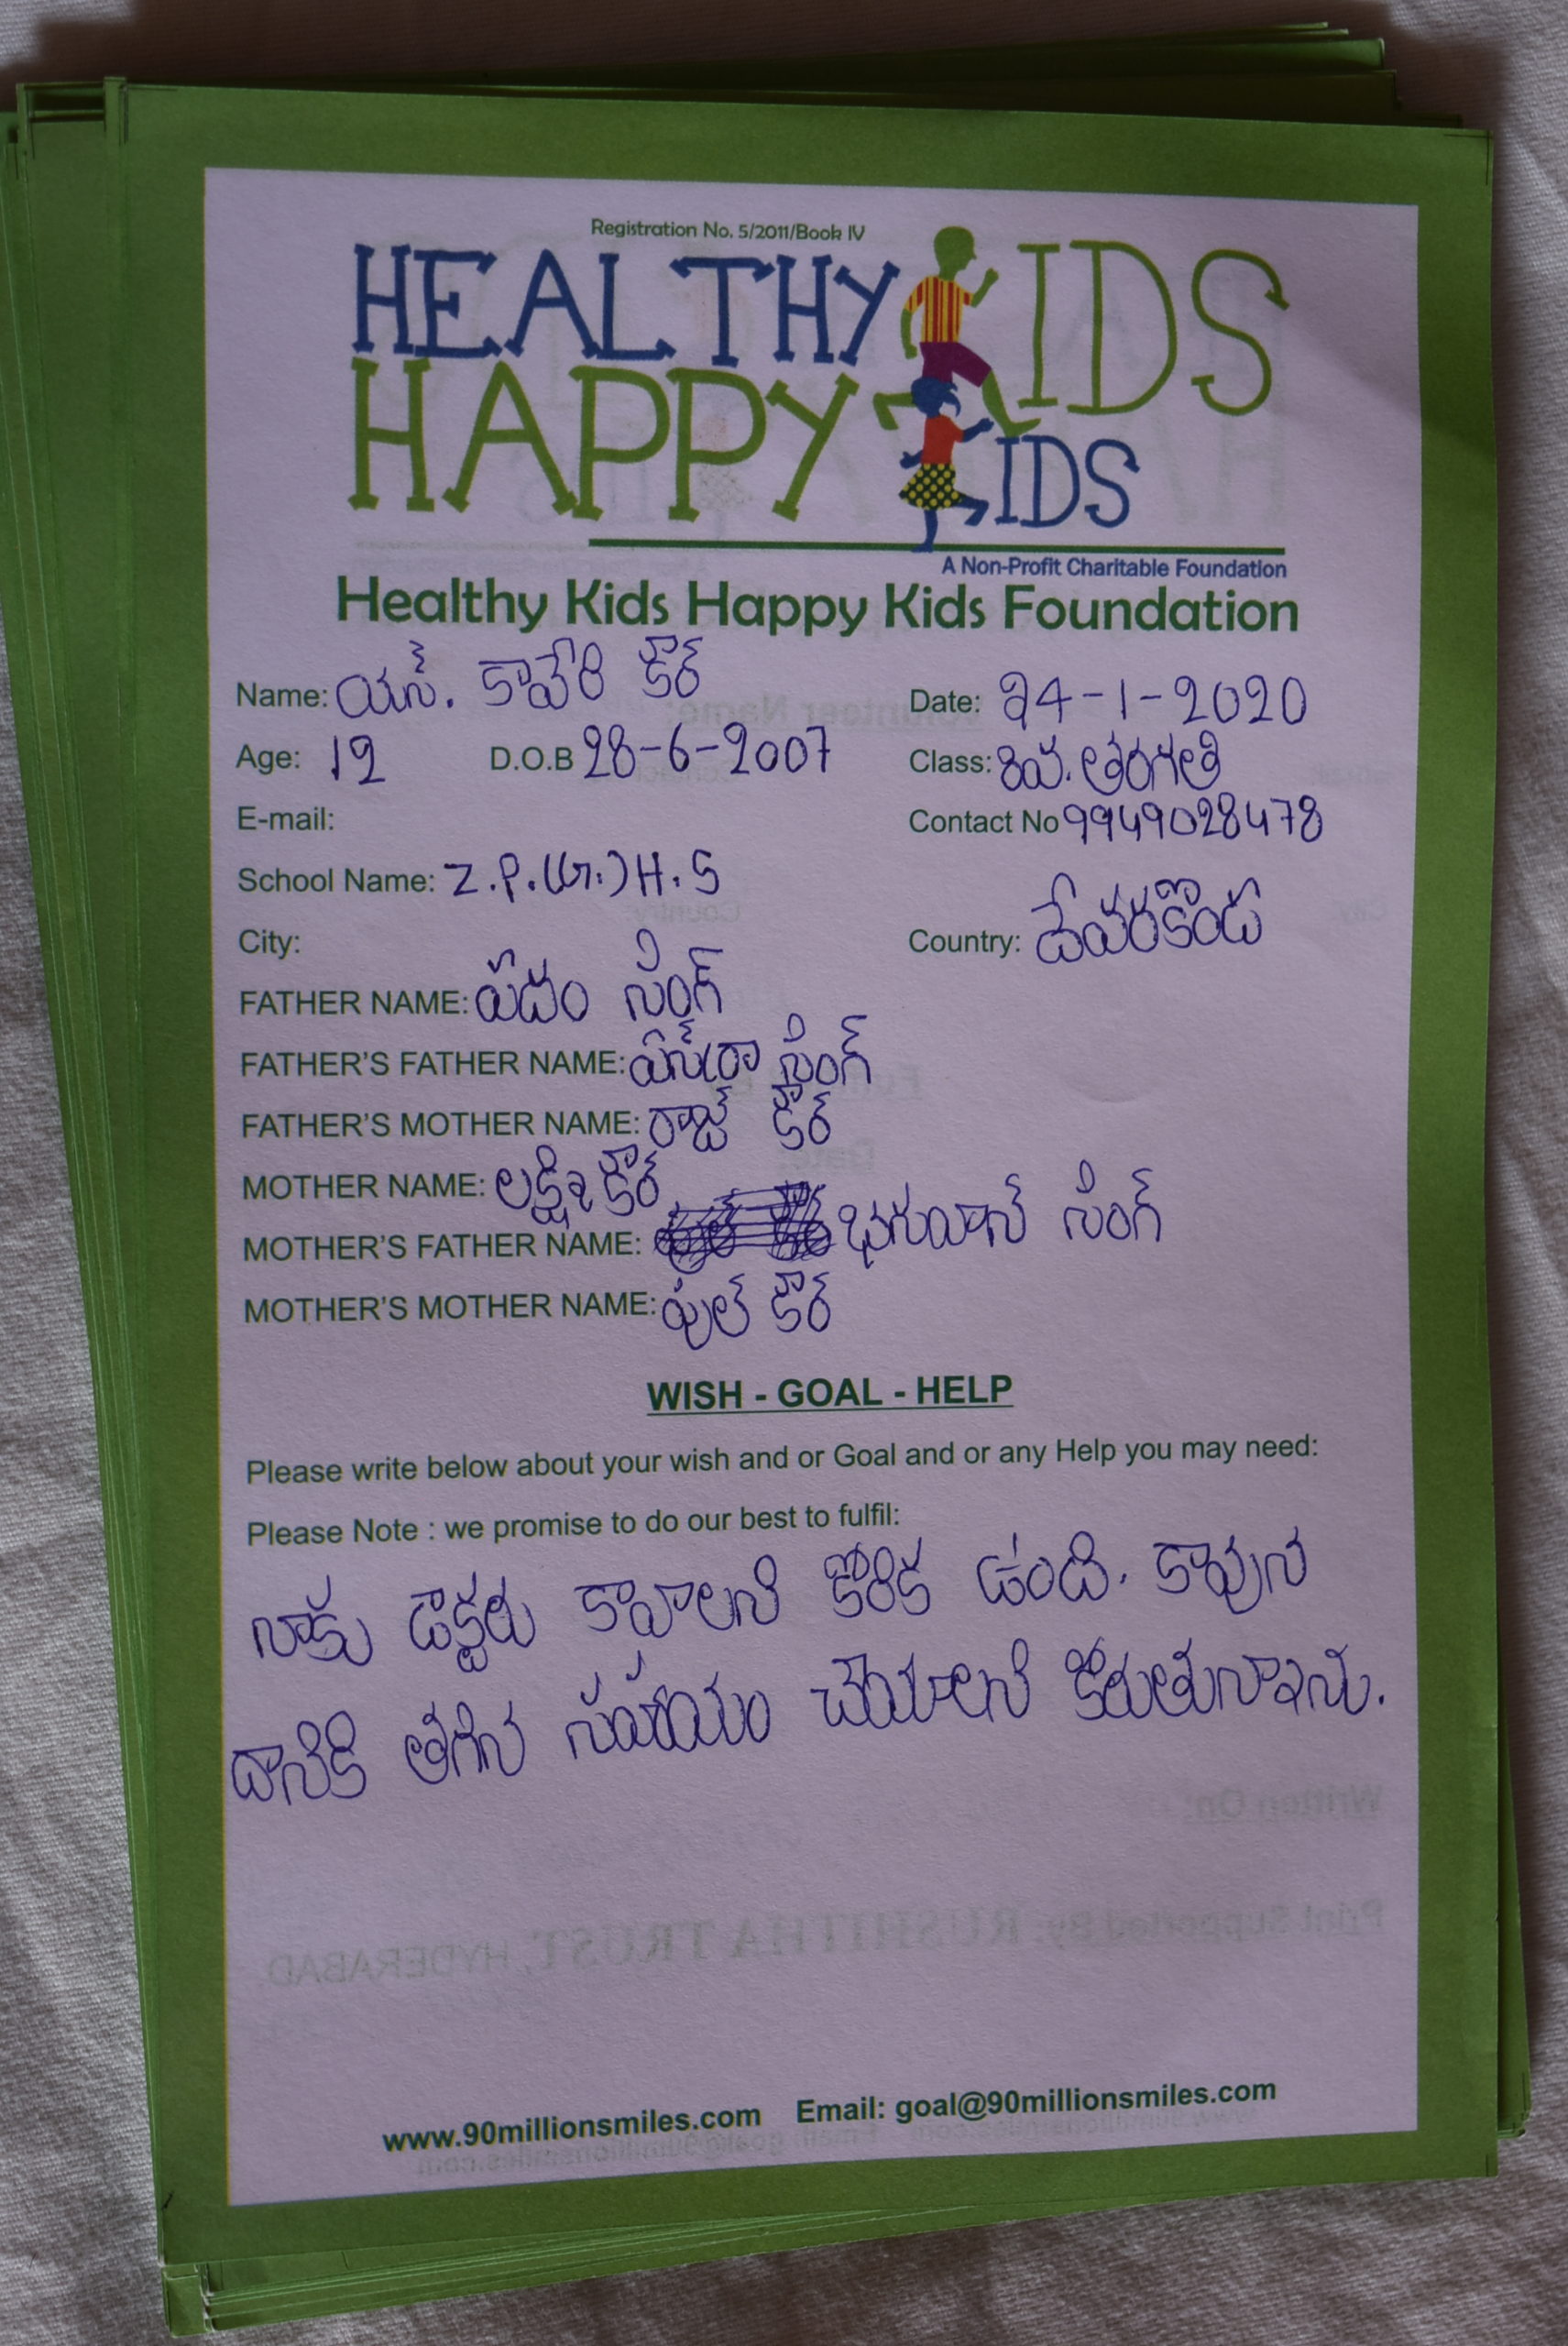 Registration No. 5/2011/Book IV
HEALTHY KIDS
HAPPY KIDS
A Non-Profit Charitable Foundation
Healthy Kids Happy Kids Foundation
Name: యస్. కావేరి కౌర్ Date: 24-1-2020
Age: 12 D.O.B 28-6-2007 Class: 8వ. తరగతి
E-mail: Contact No 9949028478
School Name: Z.P.(G.)H.S
City: Country: దేవరకొండ
FATHER NAME: పదం సింగ్
FATHER'S FATHER NAME: సింగ్
FATHER'S MOTHER NAME: రాజ్ కౌర్
MOTHER NAME: లక్ష్మి కౌర్
MOTHER'S FATHER NAME: భగవాన్ సింగ్
MOTHER'S MOTHER NAME: ఫుల్ కౌర్
WISH - GOAL - HELP
Please write below about your wish and or Goal and or any Help you may need:
Please Note : we promise to do our best to fulfil:
నాకు డాక్టరు కావాలని కోరిక ఉంది. కావున
దానికి తగిన సహాయం చేయాలని కోరుతున్నాను.
www.90millionsmiles.com Email: goal@90millionsmiles.com